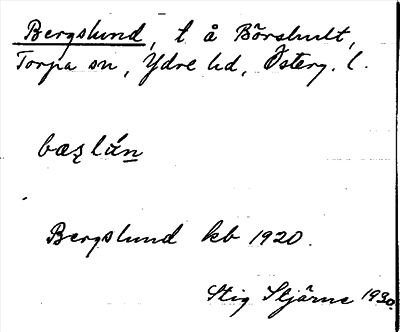 Bergslund, t å Börshult,
Torpa sn, Ydre hd, Österg. l.
bæʒlún
Bergslund kb 1920.
Stig Stjärne 1930.